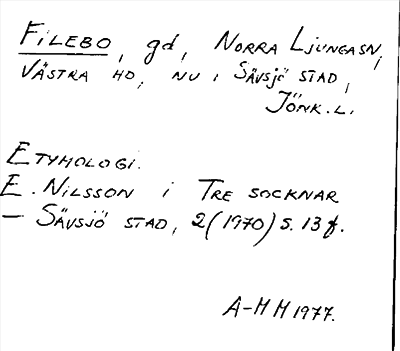 FILEBO, gd, NORRA LJUNGA SN,
VÄSTRA HD, NU I SÄVSJÖ STAD,
JÖNK. L.
ETYMOLOGI.
E. NILSSON i TRE SOCKNAR
– SÄVSJÖ STAD, 2 (1970) S. 13 f.
A-M H 1977.